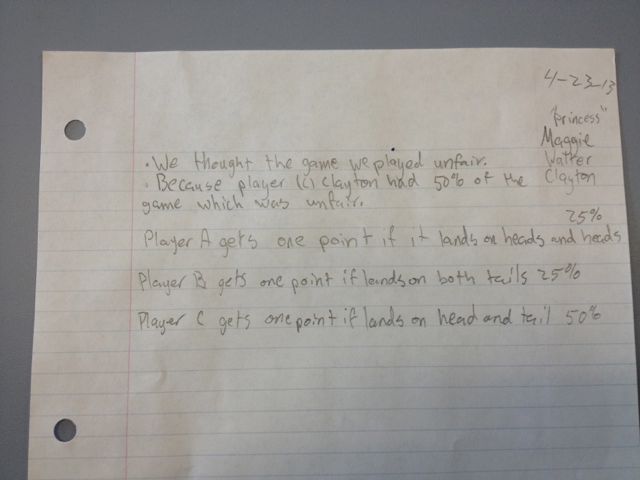 4-23-13
"Princess"
Maggie
Walter
Clayton
• We thought the game we played unfair.
• Because player (c) Clayton had 50% of the
game which was unfair.
25%
Player A gets one point if it lands on heads and heads
Player B gets one point if lands on both tails 25%
Player C gets one point if lands on head and tail 50%